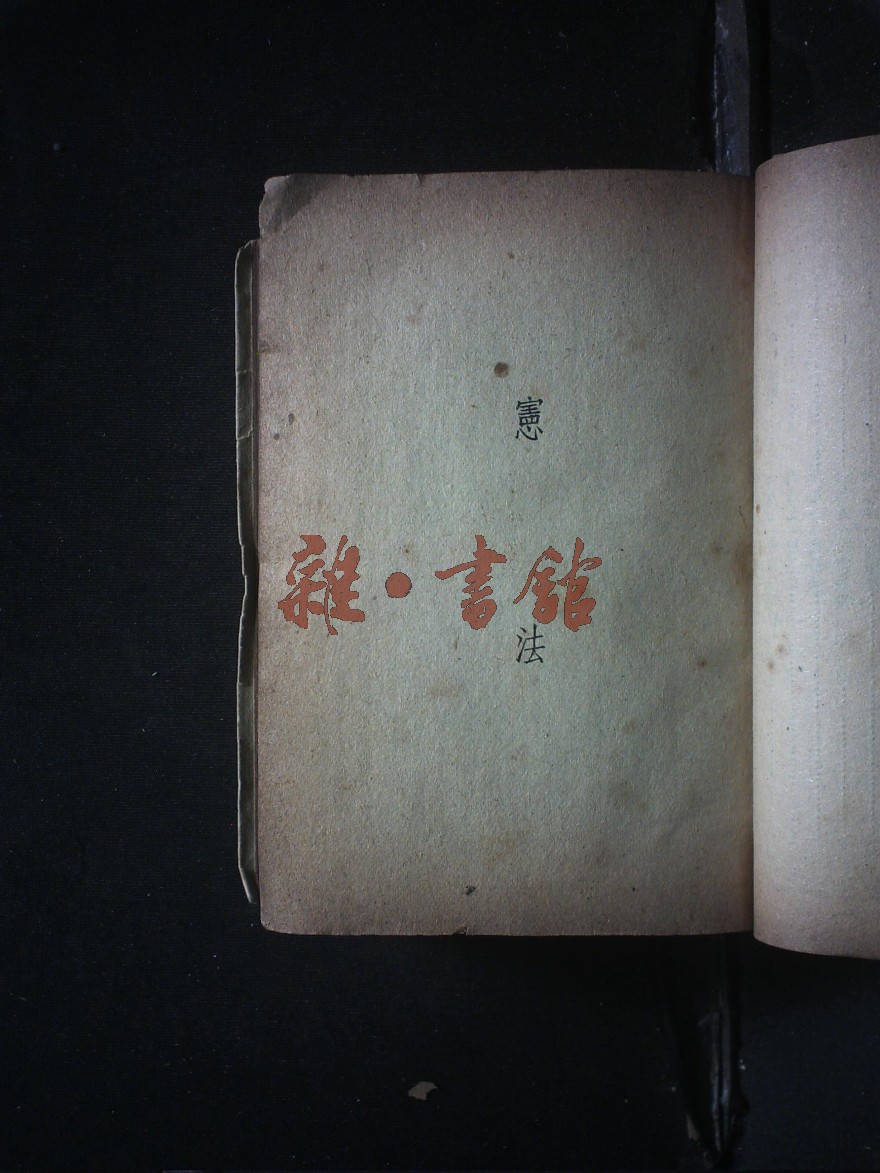 憲法
雜·書館